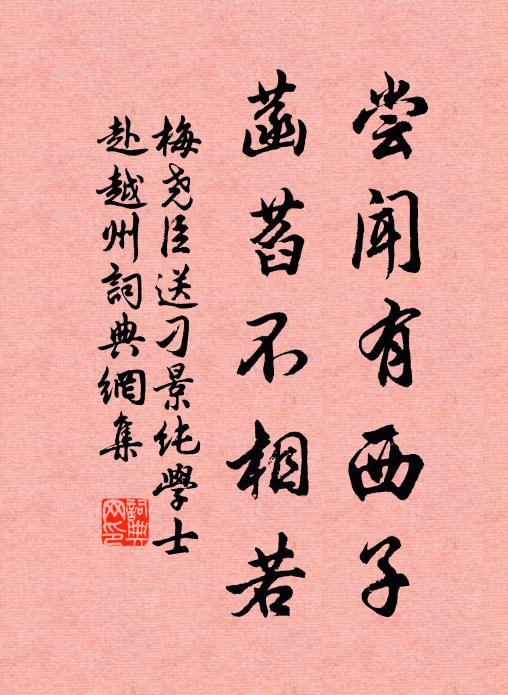 尝闻有西子
菡萏不相若
梅尧臣送刁景纯學士
赴越州詞典網集
詞典网印